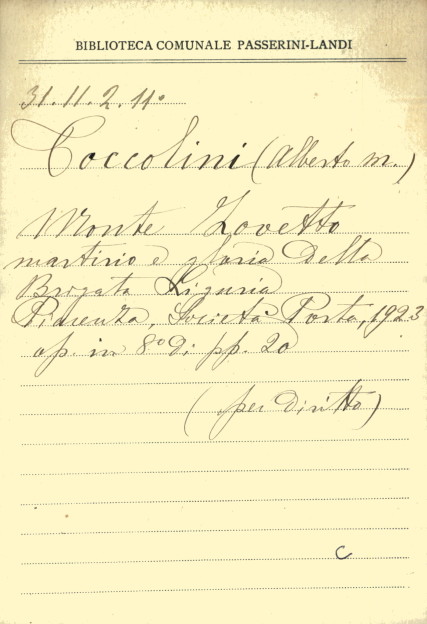 BIBLIOTECA COMUNALE PASSERINI-LANDI
31.11.2.11°
Coccolini (Alberto M.)
Monte Zovetto
martirio e gloria della
Brigata Liguria
Piacenza, Società Porta, 1923
op. in 8° di pp. 20
(per diritto)
C